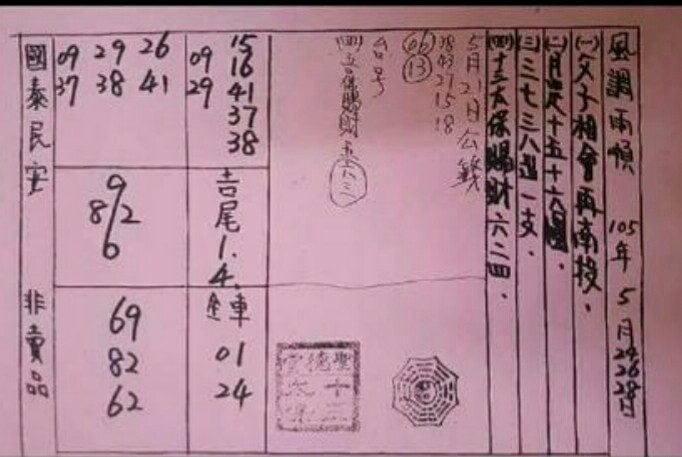 風調雨順 105年 5月24 26 28日
(一)父子相會再南投.
(二)月是十五十六圓.
(三)三七三八選一支.
(四)十三太保賜財六二四.
5月21日公籤
38 43 27 15 18
06
13
台号
15 16 41 37 38
09 29
吉尾1.4.
車
01
24
26 41
29 38
09 37
9
8/2
6
69
82
62
國泰民安 非賣品
聖德堂
十三太保